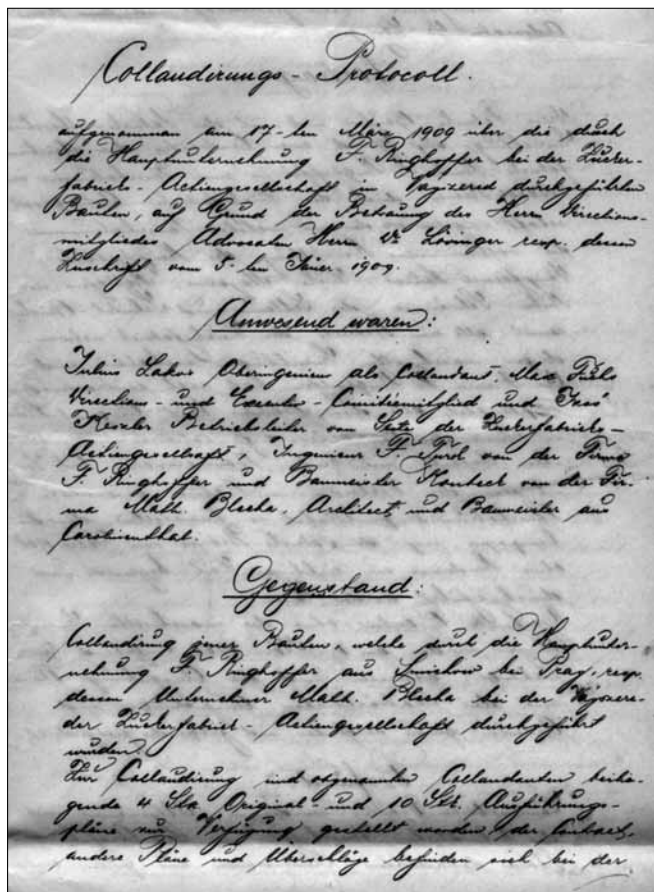 Collaudirungs - Protocoll.
aufgenommen am 17-ten März 1909 über die durch
die Hauptunternehmung F. Ringhoffer bei der Zucker-
fabriks - Actiengesellschaft in Vágszered durchgeführten
Bauten, auf Grund der Betrauung des Herrn Directions-
mitgliedes Advocaten Herrn Dr. Lövinger resp. dessen
Zuschrift vom 5-ten Jäner 1909.
Anwesend waren:
Julius Lakos Oberingenieur als Collaudant, Max Fuchs
Directions - und Executiv - Comitémitglied und
Keszler Betriebsleiter von Seite der Zuckerfabriks -
Actiengesellschaft, Ingenieur F. Tyrol von der Firma
F. Ringhoffer und Baumeister von der Fir-
ma Math. Blecha, Architect und Baumeister aus
Carolinenthal.
Gegenstand:
Collaudirung jener Bauten, welche durch die Hauptunter-
nehmung F. Ringhoffer aus Smichow bei Prag, resp.
dessen Unternehmer Math. Blecha bei der Vágszere-
der Zuckerfabriks - Actiengesellschaft durchgeführt
wurden.
Zur Collaudirung sind obgenannten Collaudanten beilie-
gende 4 Stk. Original - und 10 Stk. Ausführungs-
pläne zur Verfügung gestellt worden, der Contract,
andere Pläne und Überschläge befinden sich bei der